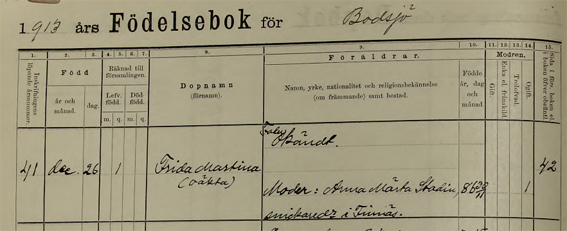 1913 års Födelsebok för Bodsjö
1. 2. 3. 4. 5. 6. 7. 8. 9. 10. 11. 12. 13. 14. 15.
Inskrifningens löpande årsnummer.
Född
år och månad. dag.
Räknad till församlingen.
Lefv. född. Död-född.
m. q. m. q.
Dopnamn
(förnamn).
Föräldrar.
Namn, yrke, nationalitet och religionsbekännelse
(om främmande) samt bostad.
Födde år, dag och månad.
Modren.
Gift. Enka el. frånskild Trolofvad. Ogift.
Sida i förs. boken el. boken öfver obefintl.
Fader
Okändt.
41 dec. 26 1 Frida Martina 42
(oäkta)
Moder: Anna Märta Stadin, 86 29/11 1
snickareds i Finnäs.